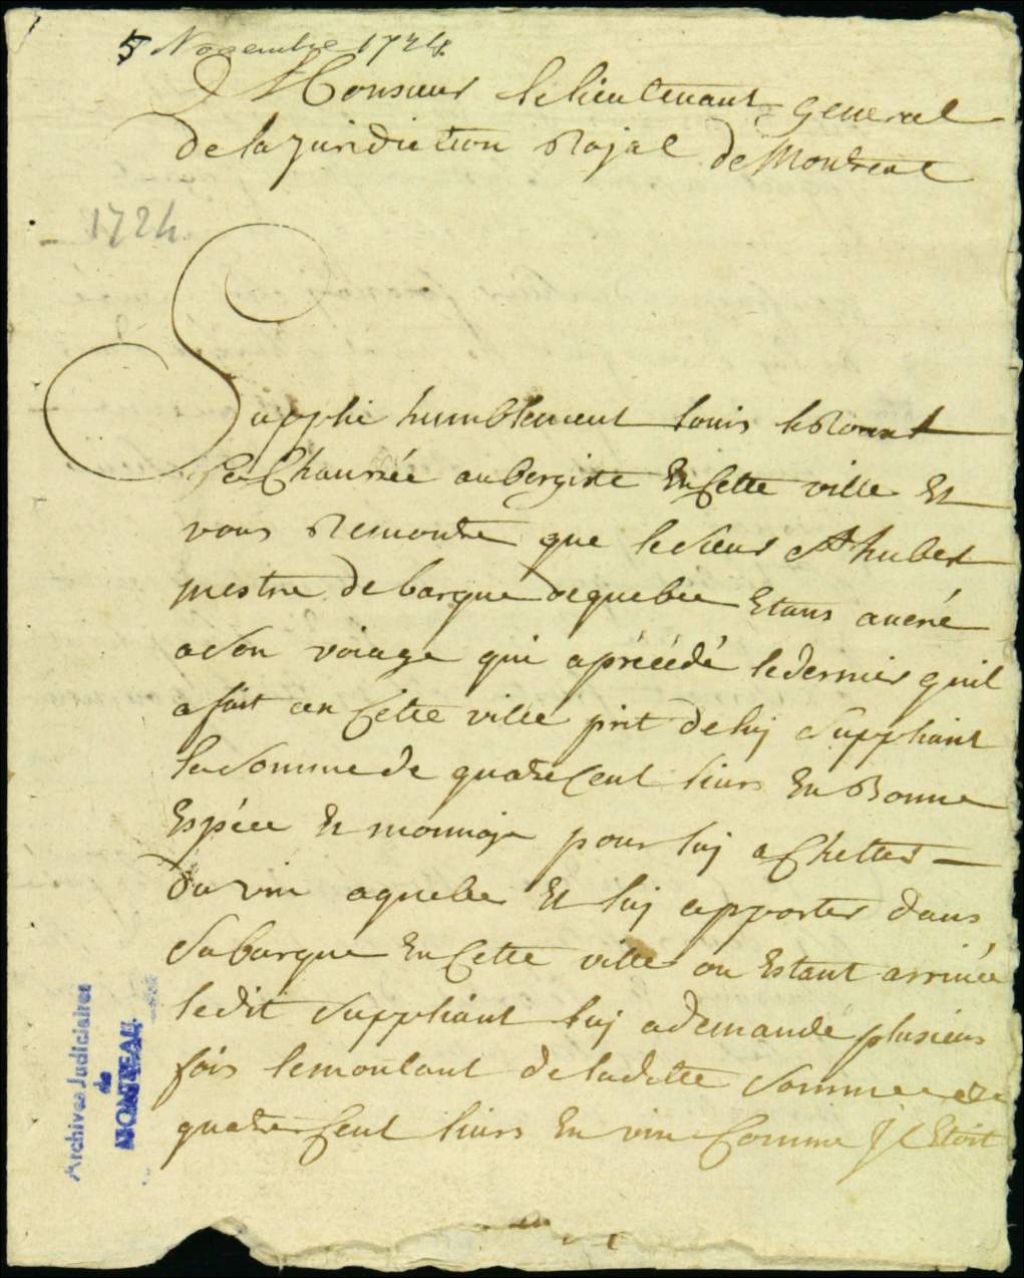 5 Novembre 1724
A Monsieur le lieutenant general
de la Juridiction Rojal de Montreal
1724
Supplie humblement louis
La Chaussée aubergiste En Cette ville Et
vous Remontre que le Sieur St hubert
mestre de barque de quebec Etans
a Son voiage qui a précédé le dernier quil
a fait en Cette ville prit de luj Suppliant
la Somme de quatre Cent liurs En Bonne
Espéce Et monnoje pour luj achetter
du vin a quebec Et luj apporter dans
Sa barque En Cette ville ou Estant arrivée
ledit Suppliant luj a demandé plusieurs
fois le montant de laditte Somme de
quatre Cent liurs En vin Comme Jl Etoit
Archives Judiciaires
de
MONTREAL